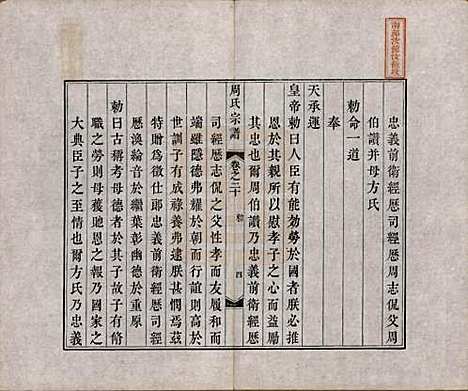 忠義前衛經歷司經歷周志侃父周
伯讚并母方氏
勅命一道
奉
天承運
皇帝勅曰人臣有能効勞於國者朕必推
恩於其親所以慰孝子之心而益勵
其忠也爾周伯讚乃忠義前衛經歷
周氏宗譜
卷之二十
四
司經歷志侃之父性孝而友制行則
端雖隱德弗耀於朝而行誼則異於
世訓子有成祿養弗逮朕甚憫焉茲
特贈爲徵仕郎忠義前衛經歷司經
歷渙綸音於繼葉彰幽德於重泉
勅曰古稱考母德者於其子故子有率
職之勞則母獲貤恩之報乃國家之
大典臣子之至情也爾方氏乃忠義